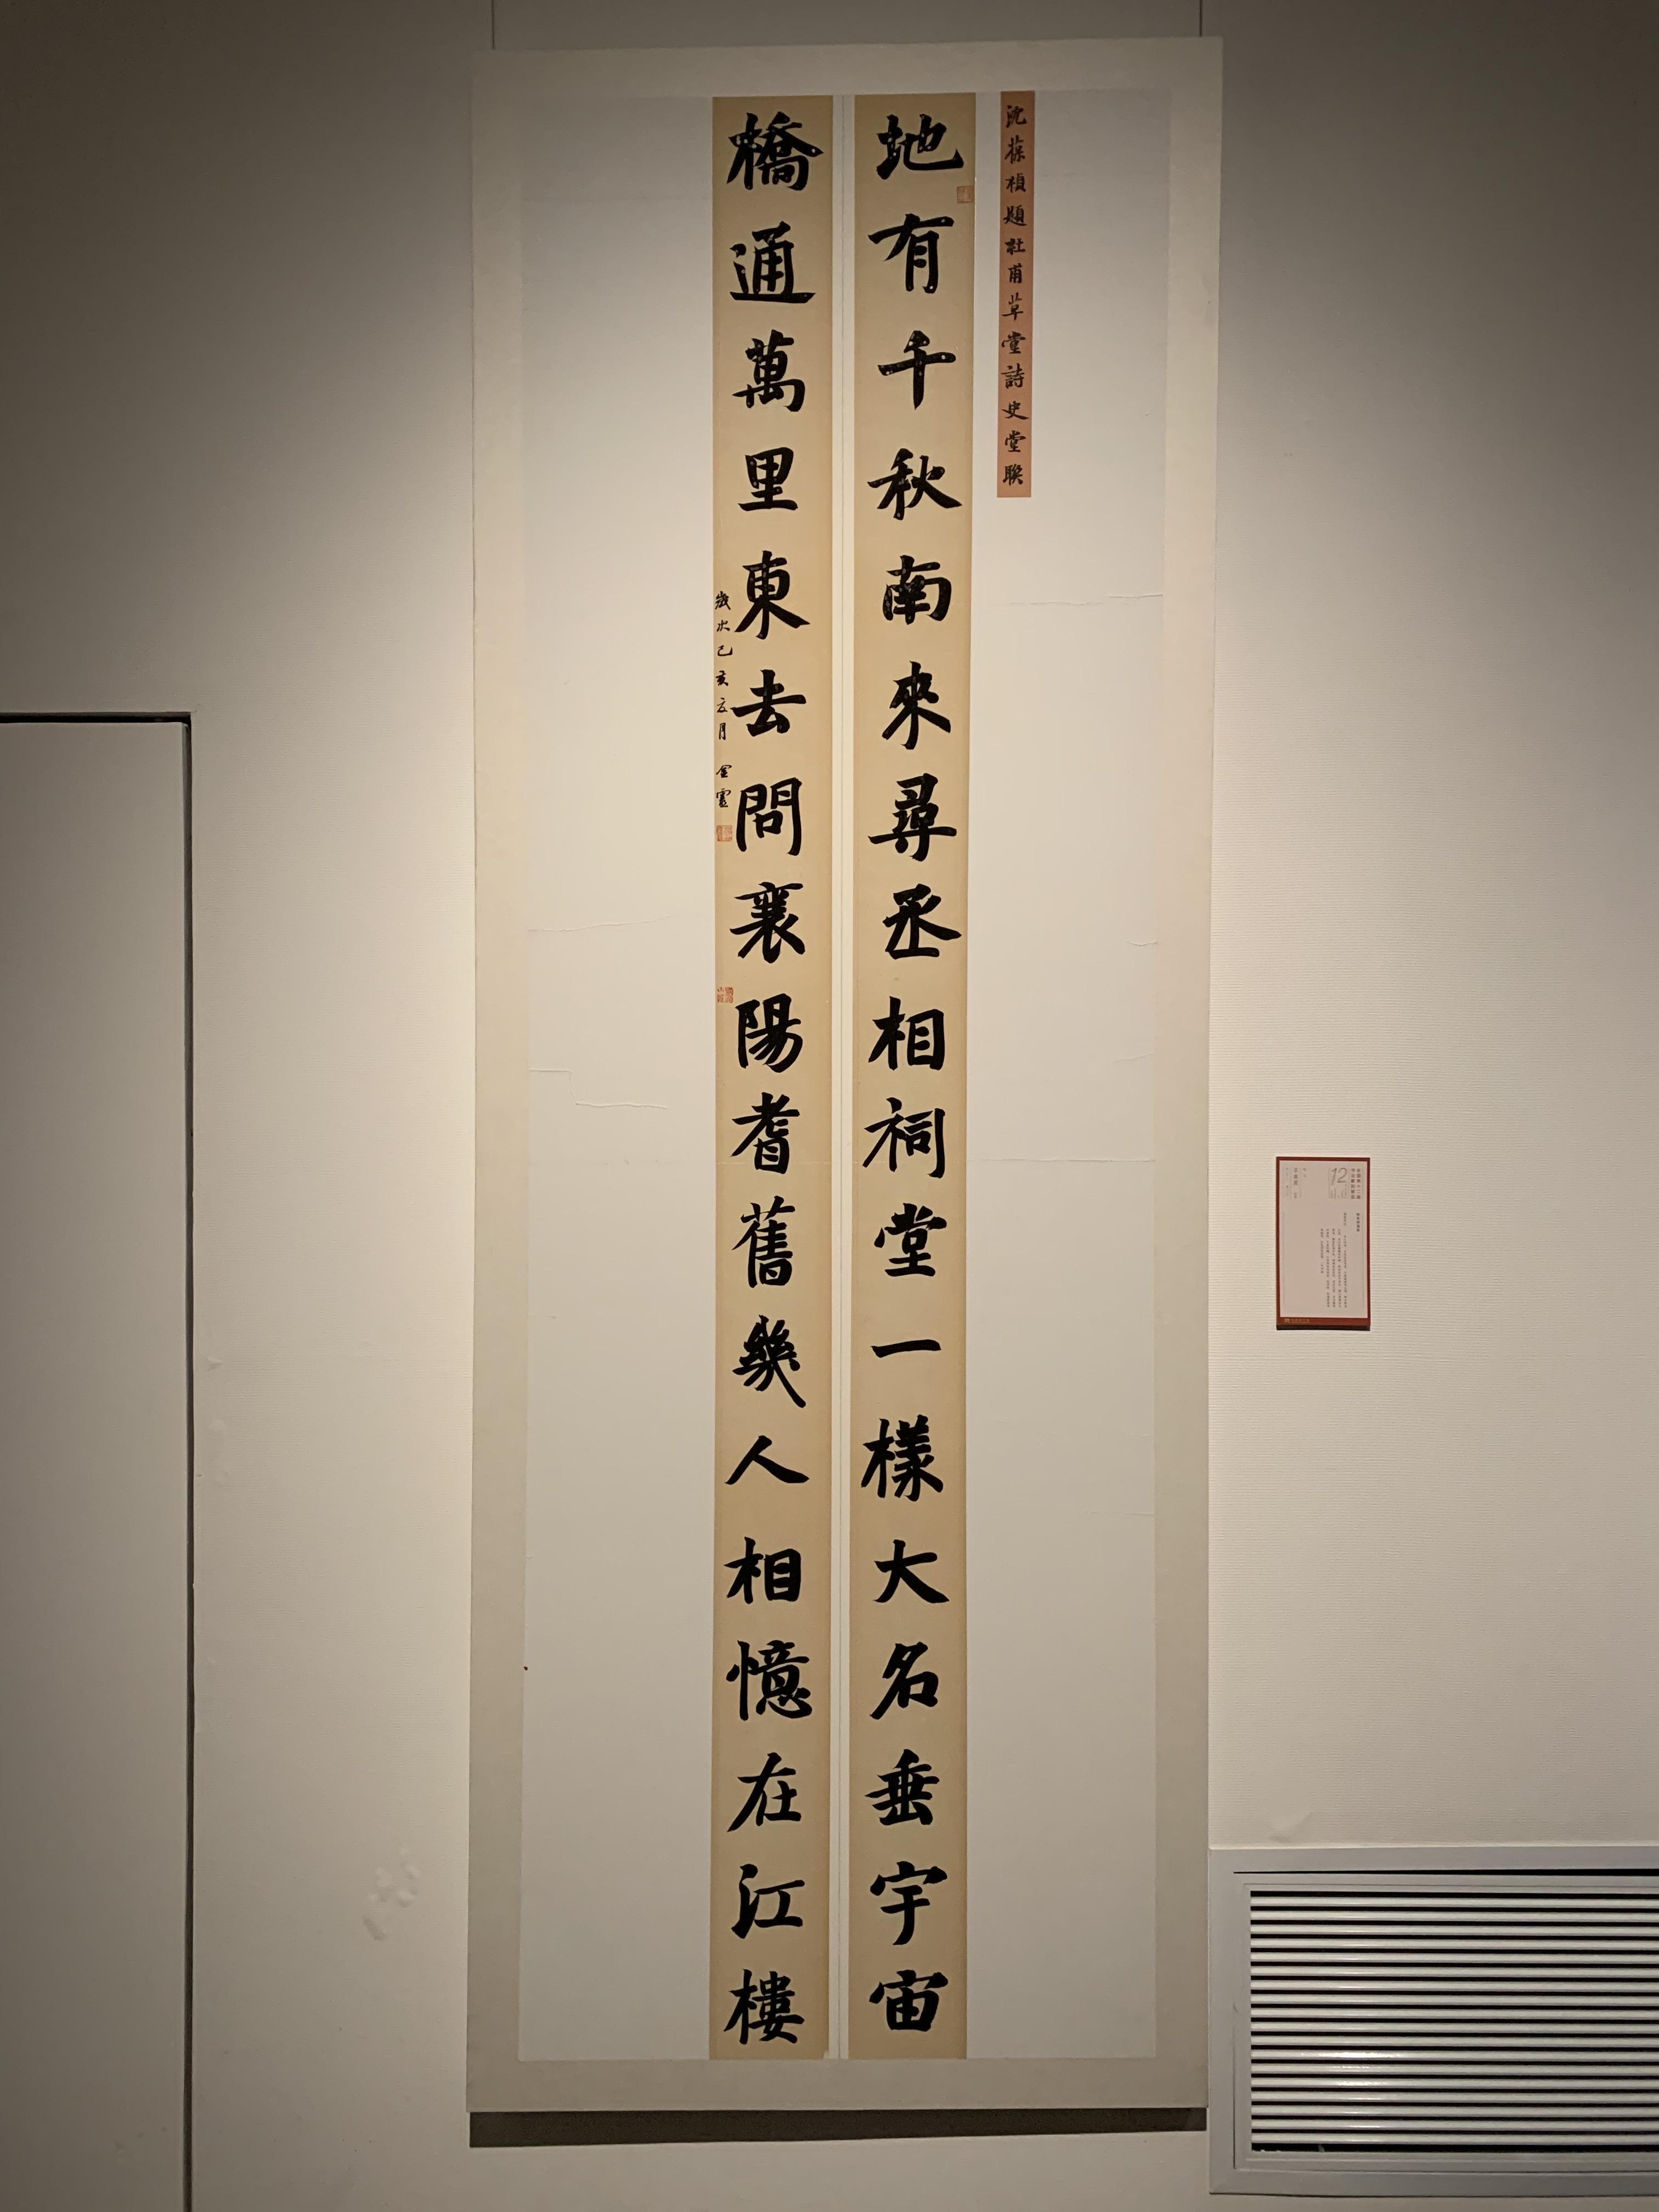 沈葆楨題杜甫草堂詩史堂聯
地有千秋南來尋丞相祠堂一樣大名垂宇宙
橋通萬里東去問襄陽耆舊幾人相憶在江樓
歲次己亥六月 金靈
12